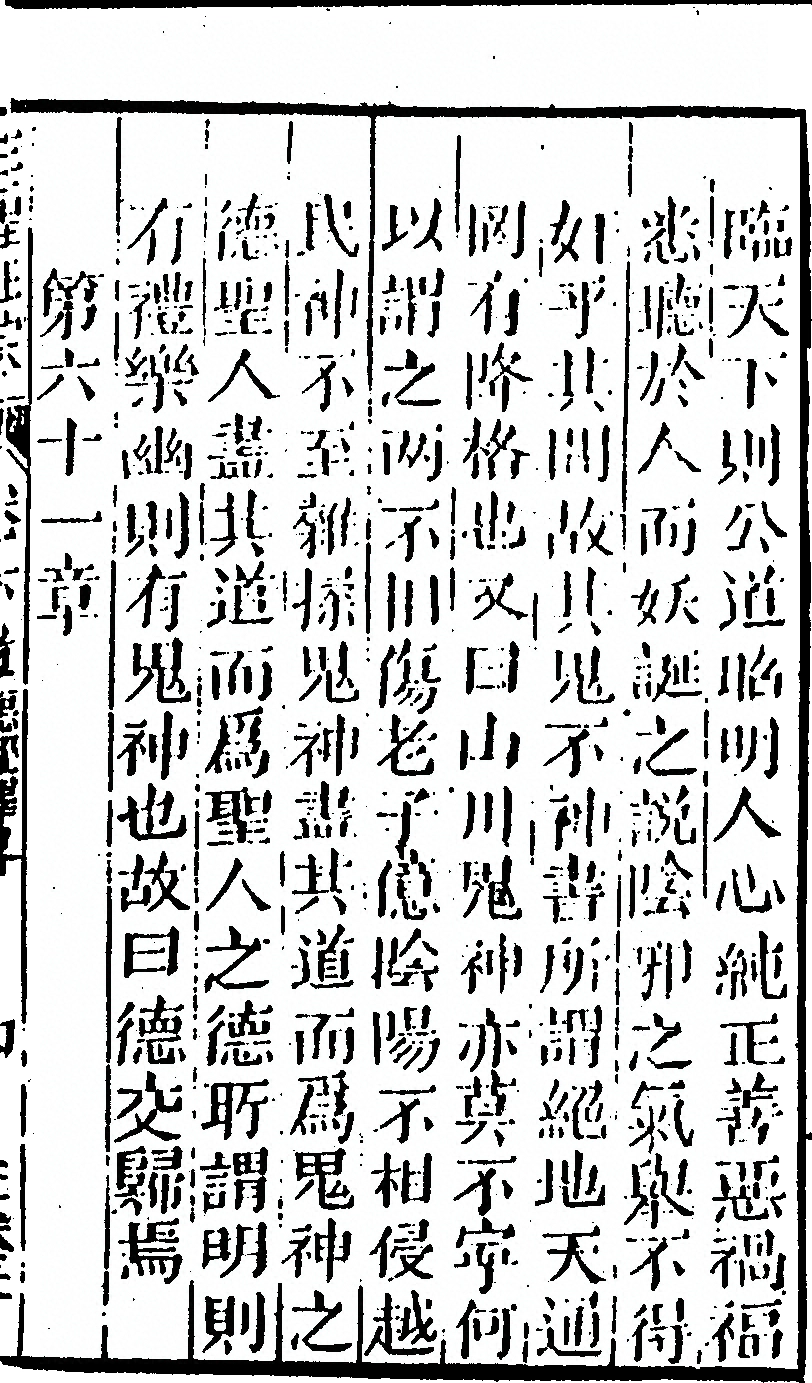 臨天下則公道昭明人心純正善惡禍福
悉聽於人而妖誕之說陰邪之氣舉不得
如乎其間故其鬼不神書所謂絕地天通
罔有降格也又曰山川鬼神亦莫不寧何
以謂之两不相傷老子億陰陽不相侵越
民神不至雜揉鬼神盡其道而爲鬼神之
德聖人盡其道而爲聖人之德所謂明則
有禮樂幽則有鬼神也故曰德交歸焉
第六十一章